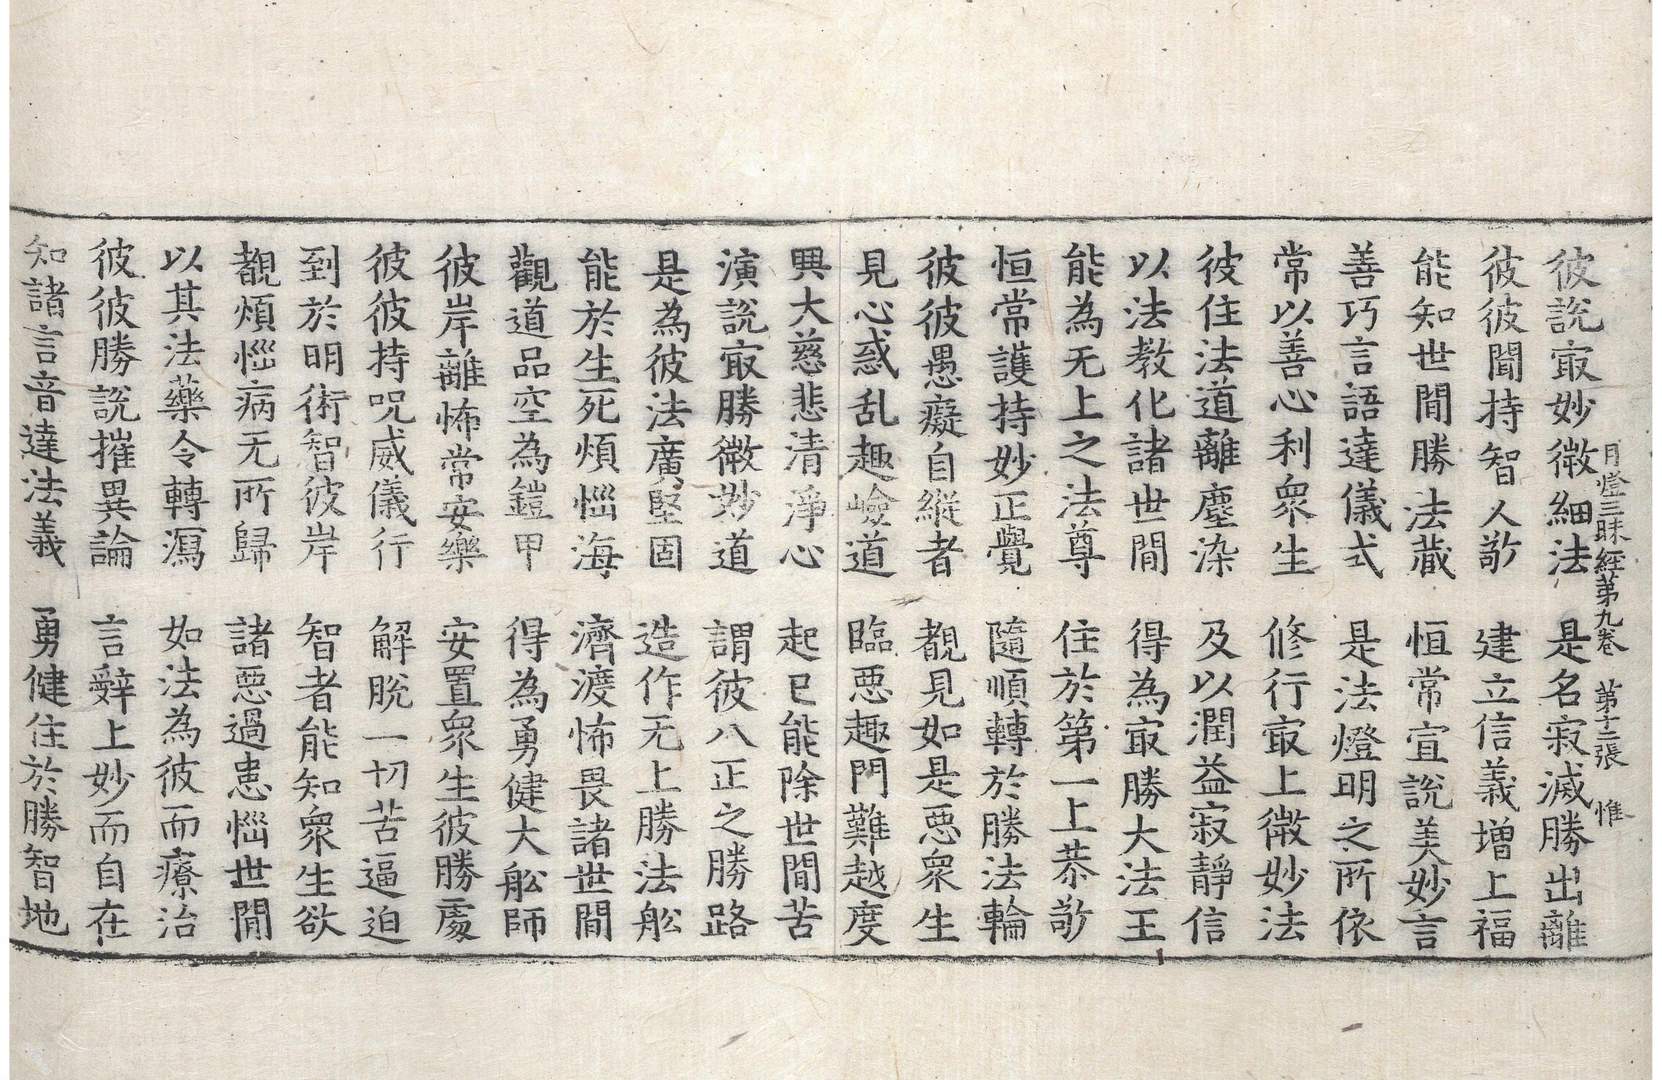 月燈三昧經第九卷 第十二張 惟
彼說㝡妙微細法 是名寂滅勝出離
彼彼聞持智人敬 建立信義增上福
能知世間勝法藏 恒常宣說美妙言
善巧言語達儀式 是法燈明之所依
常以善心利衆生 修行㝡上微妙法
彼住法道離塵染 及以潤益寂靜信
以法教化諸世間 得為㝡勝大法王
能為无上之法尊 住於第一上恭敬
恒常護持妙正覺 隨順轉於勝法輪
彼彼愚癡自縱者 覩見如是惡衆生
見心惑乱趣嶮道 臨惡趣門難越度
興大慈悲清淨心 起已能除世間苦
演說㝡勝微妙道 謂彼八正之勝路
是為彼法廣堅固 造作无上勝法舩
能於生死煩惱海 濟渡怖畏諸世間
觀道品空為鎧甲 得為勇健大舩師
彼岸離怖常安樂 安置衆生彼勝處
彼彼持呪威儀行 解脫一切苦逼迫
到於明術智彼岸 智者能知衆生欲
覩煩惱病无所歸 諸惡過患惱世間
以其法藥令轉瀉 如法為彼而療治
彼彼勝說摧異論 言辭上妙而自在
知諸言音達法義 勇健住於勝智地